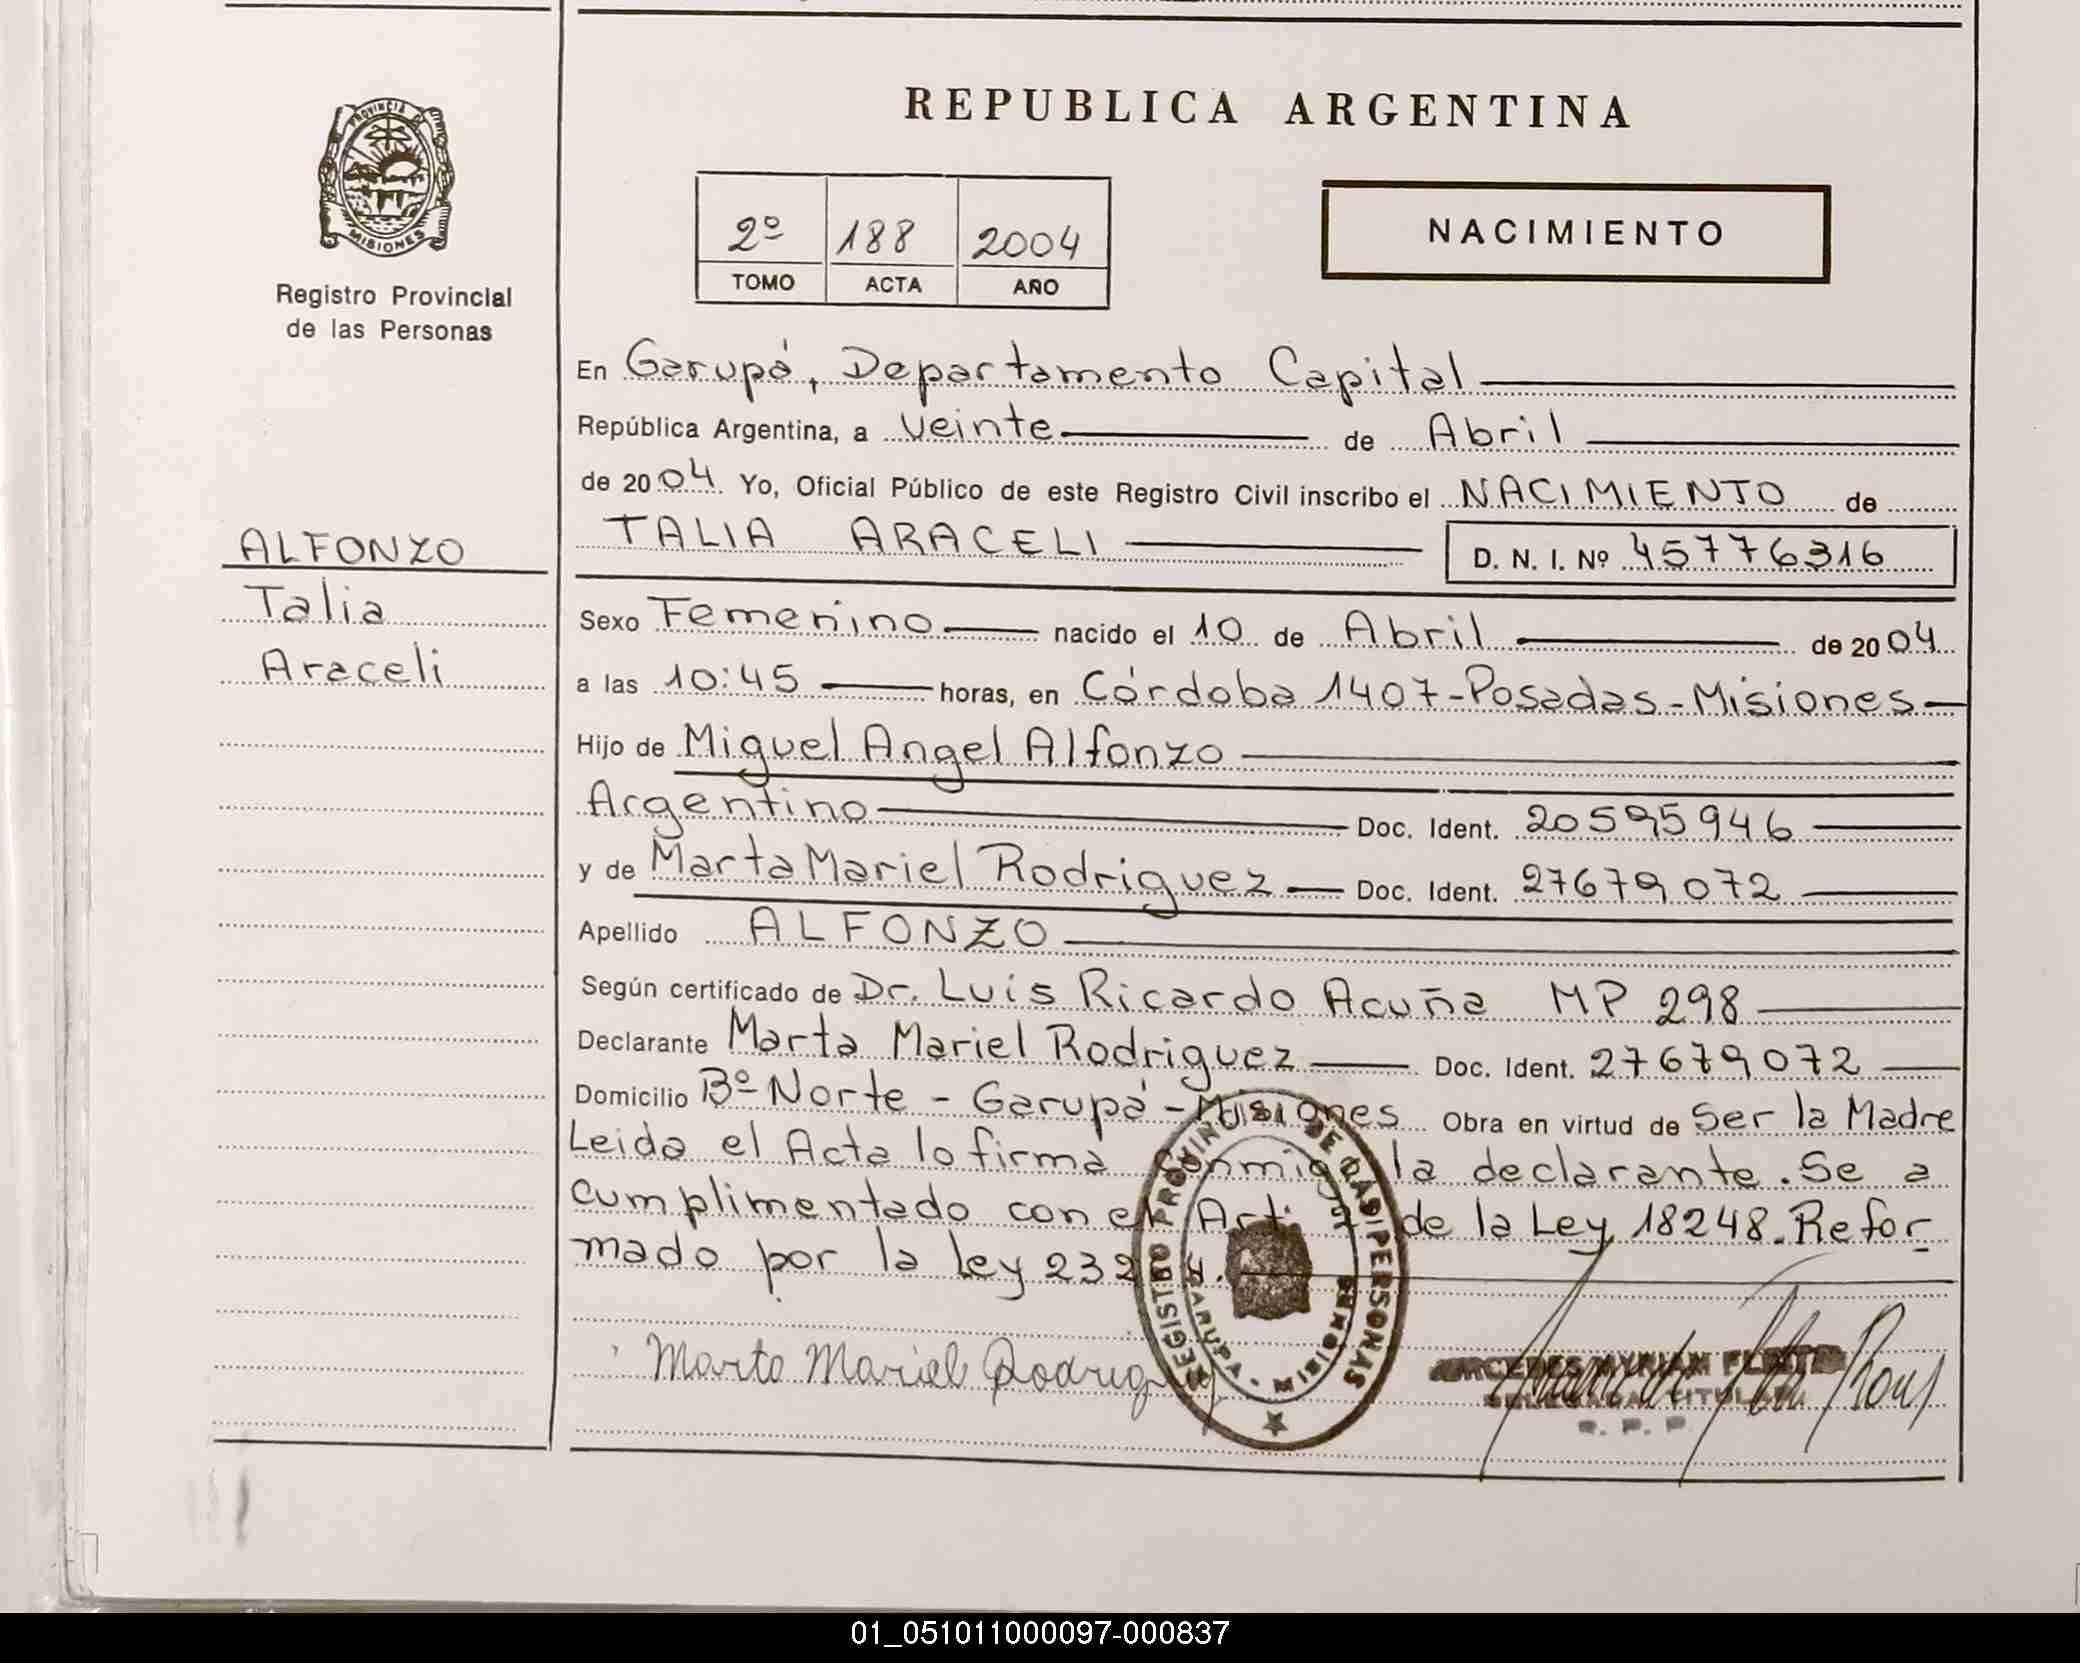 PROVINCIA D
MISIONES
Registro Provincial
de las Personas
ALFONZO
Talia
Araceli
REPUBLICA ARGENTINA
2º 188 2004
TOMO ACTA AÑO
NACIMIENTO
En Garupá, Departamento Capital
República Argentina, a Veinte de Abril
de 2004 Yo, Oficial Público de este Registro Civil inscribo el NACIMIENTO de
TALIA ARACELI D. N. I. Nº 45776316
Sexo Femenino nacido el 10 de Abril de 2004
a las 10:45 horas, en Córdoba 1407-Posadas-Misiones
Hijo de Miguel Angel Alfonzo
Argentino Doc. Ident. 20595946
y de Marta Mariel Rodriguez Doc. Ident. 27679072
Apellido ALFONZO
Según certificado de Dr. Luis Ricardo Acuña MP 298
Declarante Marta Mariel Rodriguez Doc. Ident. 27679072
Domicilio Bº Norte - Garupá - Misiones Obra en virtud de Ser la Madre
Leida el Acta lo firma conmigo la declarante. Se a
cumplimentado con el Art. de la Ley 18248. Refor-
mado por la ley
REGISTRO PROVINCIAL DE LAS PERSONAS
GARUPA - MISIONES
Marta Mariel Rodrig
TITULAR
R. P. P.
01_051011000097-000837